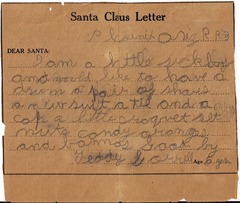 Santa Claus Letter
Phoenix Ariz R.R.3
DEAR SANTA:
I am a little sick boy
and would like to have a
drum a pair of shoes
a new suit a tie and a
cap a little croquet set
nuts candy oranges
and bannas good by
Teddy Age 6 yrs